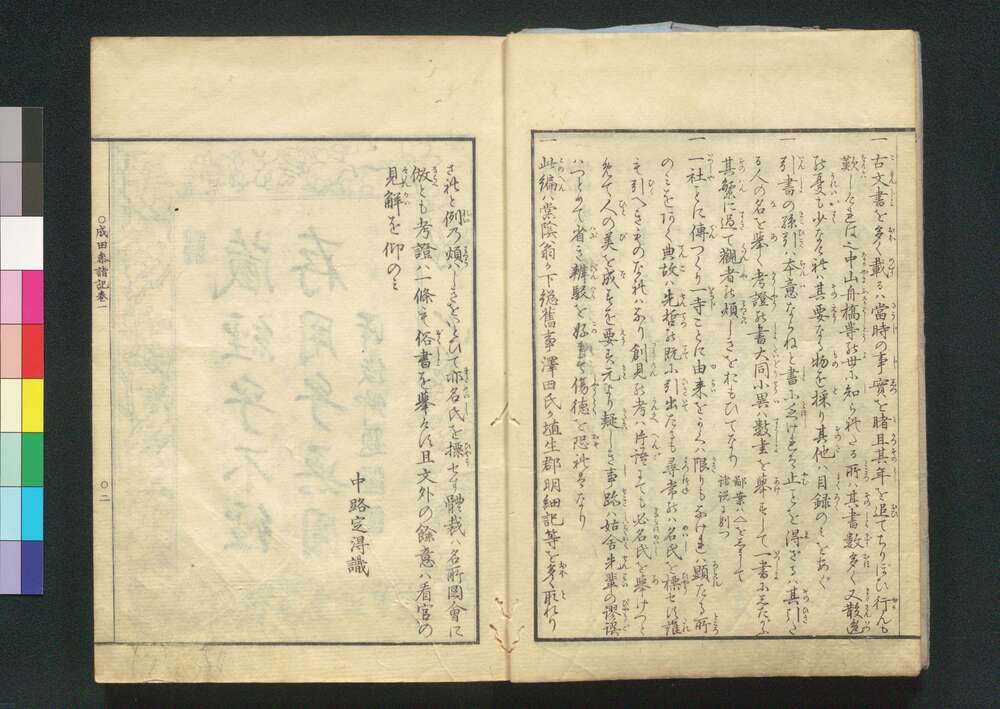 一古文書を多く載るハ當時の事實を睹且其年を追てちりぼひ行んも
歎しけれはなり中山舟橋等の世に知られたる所ハ其書数多く又散逸
の憂も少なければ其要なる物を採り其他ハ目録のミをあぐ
一引書の孫引ハ本意ならねと書に乏けれは止ことを得ざるハ其引たる
人の名を挙く考證の書大同小異ハ数書を挙すして一書にしたがふ
其繁に過て觀者の煩しきをおもひてなり
鄙案ハ△をしるして
諸説に別つ
一一社ことに傳つくり一寺ことに由来をかくハ限りもなけれは顕たる所
のミをあく典故ハ先哲の既に引出たるも尋常のハ名氏を標せす誰
も引へきものなれハなり創見の考ハ片語にても必名氏を舉けつ
人の美を成すを要す元より疑しき事跡ハ姑舎朱輩の謬誤
ハつとめて省き辨駁を好ます傷德を恐れてなり
一此編ハ棠陰翁か下総舊事澤田氏か埴生郡明細記等を多く取れり
されと例の煩ハしきをいとひて亦名氏を標せす體裁ハ名所圖會に
倣とも考證ハ一條も俗書を舉くるす且文外の餘意ハ看官の
見解を仰のミ
中路定得識
○成田參詣記巻一
○二